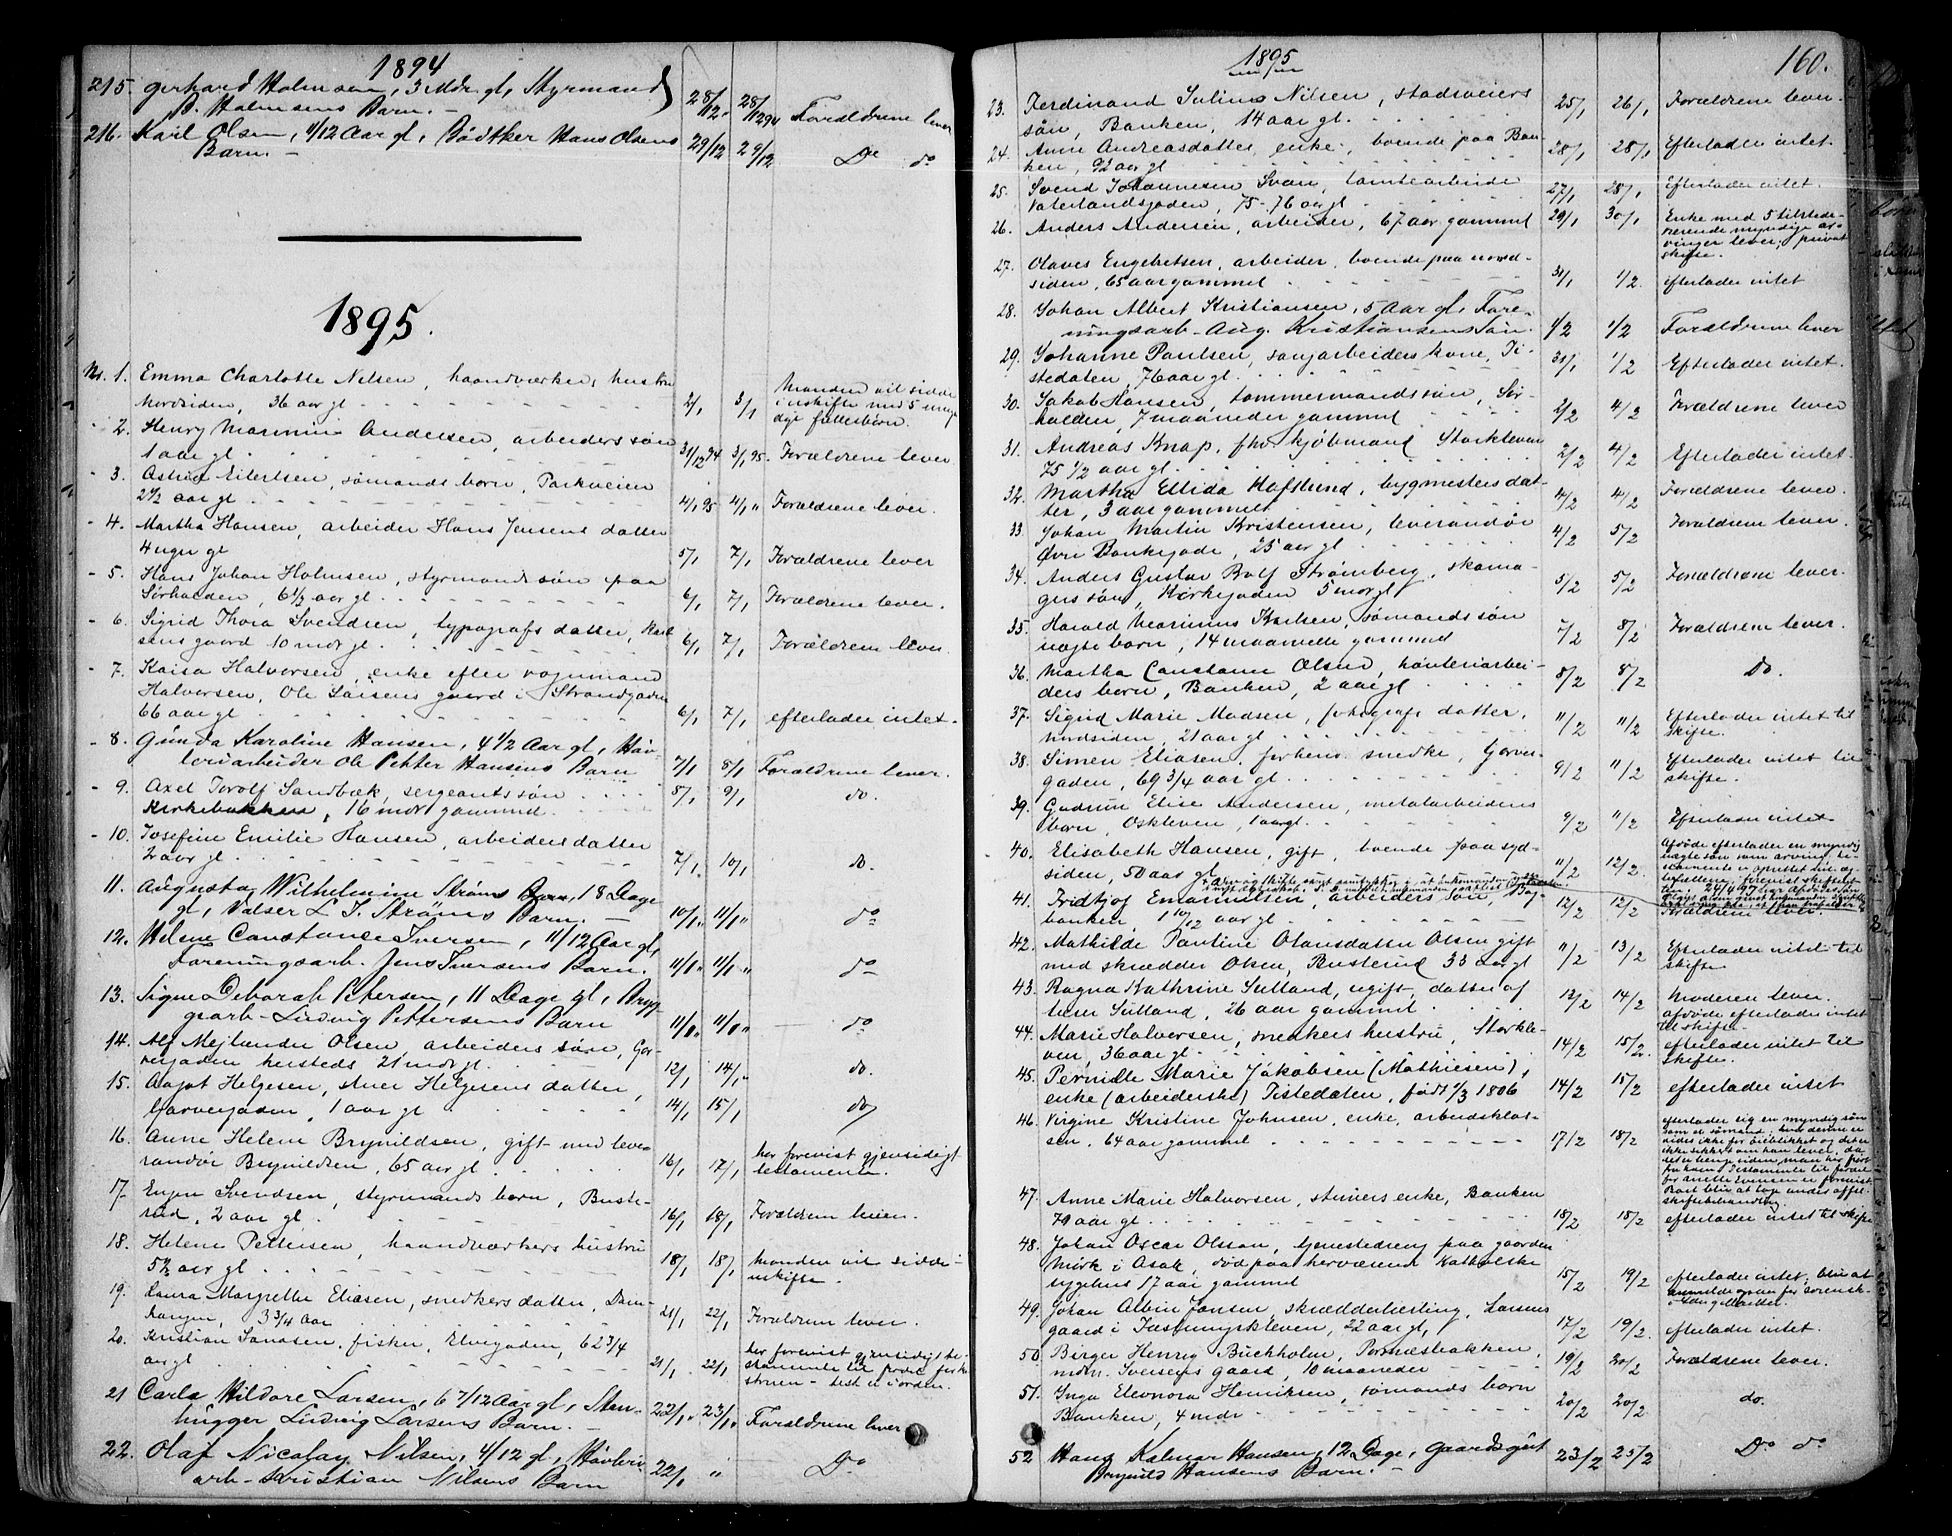 1894
215. Gerhard Holmsen, 3 Mdr. gl, Styrmand
B. Holmsens Barn.- 28/12 28/12 94 Forældrene lever
216. Karl Olsen, 1/12 Aar gl, Bødtker Hans Olsens
Barn.- 29/12 29/12 Do do
1895.
No. 1. Emma Charlotte Nilsen, haandværker, hustru
Nordsiden, 36 aar gl 2/1 3/1 Manden vil sidde
i uskifte med 5 umyn
dige fællesbørn.
- 2. Henry Marinius Andersen, arbeiders søn
1 aar gl. 31/12 94 3/1 95. Forældrene lever.
- 3. Astrid Eilertsen, sømands born, Parkveien
2 1/2 aar gl 4/1 95 4/1 " Forældrene lever.
- 4. Martha Hansen, arbeider Hans Jensens datter
4 uger gl 5/1 7/1 Forældrene lever
- 5. Hans Johan Holmsen, styrmands søn paa
Sørhalden, 6 1/3 aar gl. 6/1 7/1 Forældrene lever.
- 6. Sigrid Thora Svendsen, typografs datter, Karl
sens gaard 10 mdr gl. 6/1 7/1 Forældrene lever.
- 7. Kaisa Halvorsen, enke efter vognmand
Halvorsen, Ole Larsens gaard i Strandgaden
66 aar gl 6/1 7/1 efterlader intet.
- 8. Gunda Karoline Hansen, 4 1/2 Aar gl, Høv
leriarbeider Ole Petter Hansens Barn 7/1 8/1 Forældrene lever.
- 9. Axel Torolf Sandbæk, sergeants søn
Kirkebakken, 16 mdr gammel. 8/1 9/1 do.
- 10. Josefine Emilie Hansen, arbeiders datter
2 aar gl. 7/1 10/1 do.
11. Augusta Wilhelmine Strøms Barn, 18 Dage
gl, Valser L. J. Strøms Barn.- 10/1 " 11/1 " do
12. Helene Constance Iversen, 11/12 Aar gl,
Foreningsarb. Jens Iversens Barn. 11/1 " 11/1 " do
13. Signe Deborah Petersen, 11 Dage gl, Bryg
gearb- Ludvig Pettersens Barn 11/1 " 11/1 " do
14. Alf Mejlander Olsen, arbeiders søn, Gar
vergaden hersteds 21 mdr gl. 12/1 14/1 do.
15. Aagot Helgesen, stuer Helgesens datter,
Garvergaden, 1 aar gl 14/1 15/1 do
16. Anne Helene Brynildsen, gift med leve
randør Brynildsen, 65 aar gl 16/1 17/1 har forevist gjensidigt
testamente.
17. Svendsen, styrmands born, Buste-
rud, 2 aar gl. 16/1 18/1 Forældrene lever.
18. Helene Pettersen, haandværkers hustru
aar gl 18/1 18/1 manden vil sidde i
uskifte.
19. Laura Margrethe Eliasen, snedkers datter,
3 3/4 Aar 21/1 22/1 Forældrene lever.
20. Kristian fisker, Elvegaden, 62 3/4
aar gl 21/1 22/1 har forevist gjensidigt te-
stamente
test. i orden.
21 Carla Hildore Larsen, 6 7/12 Aar gl, Sten-
hugger Ludvig Larsens Barn.- 22/1 " 23/1 " Forældrene lever
22. Olaf Nicolay Nilsen, 4/12 gl, Høvleri
arb- Kristian Nilsens Barn 22/1 " Do
1895
160.
23. Ferdinand Julius Nilsen, stadsveiers
søn, Banken, 14 aar gl. 25/1 26/1 Forældrene lever.
24. Anne Andreasdatter, enke, boende paa Ban
ken, 92 aar gl 28/1 28/1 Efterlader intet.
25. Svend Johannesen Svan, tomtearbeider
Vaterlandsgaden, 75-76 aar gl. 27/1 28/1 Efterlader intet.
26. Anders Andersen, arbeider, 67 aar gammel 29/1 30/1 Enke med 5 tilstede-
værende myndige ar-
vinger lever; privat
skifte.
27. Olaves Engebretsen, arbeider, boende paa nord-
siden, 65 aar gammel 31/1 1/2. efterlader intet
28. Johan Albert Kristiansen, 5 Aar gl, Fore-
ningsarb- Aug. Kristiansens Søn. 1/2 1/2 Forældrene lever
29. Johanne Paulsen, sagarbeiders kone, Ti-
stedalen, 76 aar gl. 31/1 1/2 Efterlader intet.
30. Jakob Hansen, tømmermands søn, Sør-
halden, 7 maaneder gammel 2/2 4/2 Forældrene lever
31. Andreas Knap, fhv. kjøbmand Storkleven
75 1/2 aar gl. 2/2 4/2 Efterlader intet.
32. Martha Ellida Hafslund, bygmesters dat-
ter, 3 aar gammel 4/2 4/2 Forældrene lever.
33. Johan Martin Kristensen, leverandør
Øvre Bankegade, 25 aar gl. 4/2 5/2 Forældrene lever.
34. Anders Gustav Rolf Strømberg, skoma-
gers søn, Kirkegaden 5 mdr gl 5/2 5/2 Forældrene lever.
35. Harald Marinius Karlsen, sømands søn
uægte born, 14 maaneder gammel 7/2 8/2 Forældrene lever.
36. Martha Constance Olsen, høvleriarbei-
ders born, Banken, 2 aar gl 8/2 8/2 do.
37. Sigrid Marie Madsen, fotografs datter,
nordsiden, 21 aar gl. 11/2 11/2 Efterlader intet til
skifte.
38. Simen Eliasen, forhenv. snedker, Garver-
gaden, 69 3/4 aar gl. 9/2 11/2 Efterlader intet til
skifte.
39. Gudrun Elise Andersen, metalarbeiders
born, Oskleven, 1 aar gl. 9/2 11/2 Efterlader intet
40. Elisabeth Hansen, gift, boende paa syd-
siden, 50 aar gl 11/2 12/2. Afdøde efterlader en myndig
uægte søn som arving, te-
41. Fridtjof Emanuelsen, arbeiders søn,
banken, 1 10/12 aar gl 12/2 12/2 Forældrene lever.
42. Mathilde Pauline Olausdatter Olsen gift
med skrædder Olsen, Busterud 33 aar gl 11/2 13/2 Efterlader intet til
skifte
43. Ragna Kathrine Sulland, ugift, datter af
Sulland, 26 aar gammel 12/2 14/2 Moderen lever.
afdøde efterlader intet
til skifte.
44. Marie Halvorsen, snedkers hustru, Storkle-
ven, 36 aar gl. 14/2 15/2. efterlader intet til
skifte.
45. Pernille Marie Jakobsen (Mathiesen),
enke (arbeiderske) Tistedalen, født 1/3 1806 14/2 15/2 efterlader intet
46. Virgine Kristine Johnsen, enke, arbeidsklas-
sen, 64 aar gammel 17/2 18/2 efterlader sig en myndig søn
som er sømand,
47. Anne Marie Halvorsen, stuers enke, Banken
70 aar gl. 18/2 18/2 efterlader intet til skifte
48. Johan Oscar Olsson, tjenestedreng paa gaarden
Mørk i Asak, død paa herværende Katholske
sygehus 17 aar gammel 15/2 19/2 efterlader intet;
49. Johan Albin Jansen, skrædderlærling, Larsens
gaard i Jaspemyrkleven, 22 aar gl, 17/2 19/2 efterlader intet.
50. Birger Henrig Buchholm, Pornæsbakken,
Iversens gaard, 10 maaneder 19/2 20/2 Forældrene lever.
51. Inga Eleonora Henriksen, sømands born
Banken, 4 mdr 20/2 20/2 do.
52 Hans Kalmar Hansen, 12 Dage, Gaardsgut
Brynild Hansens Barn.- 23/2 25/2 Do do